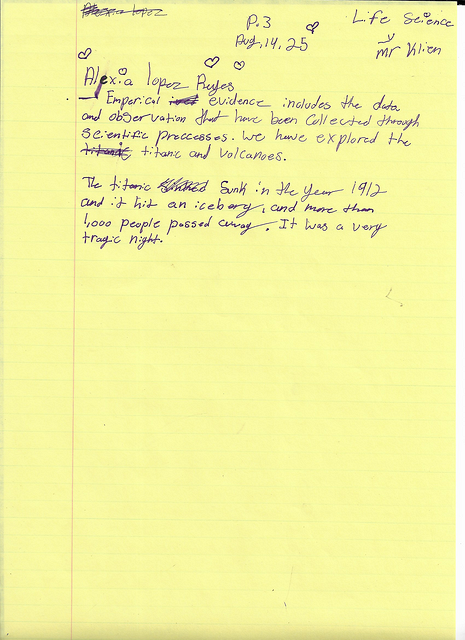 P.3
Life Science
Aug, 14, 25
Mr Klien
Alexia lopez Reyes
— Emporical evidence includes the data
and observation that have been collected through
scientific preccesses. We have explored the
titanic titanic and volcanoes.
The titanic Sunk in the year 1912
and it hit an iceberg, and more than
1,000 people passed away. It was a very
tragic night.